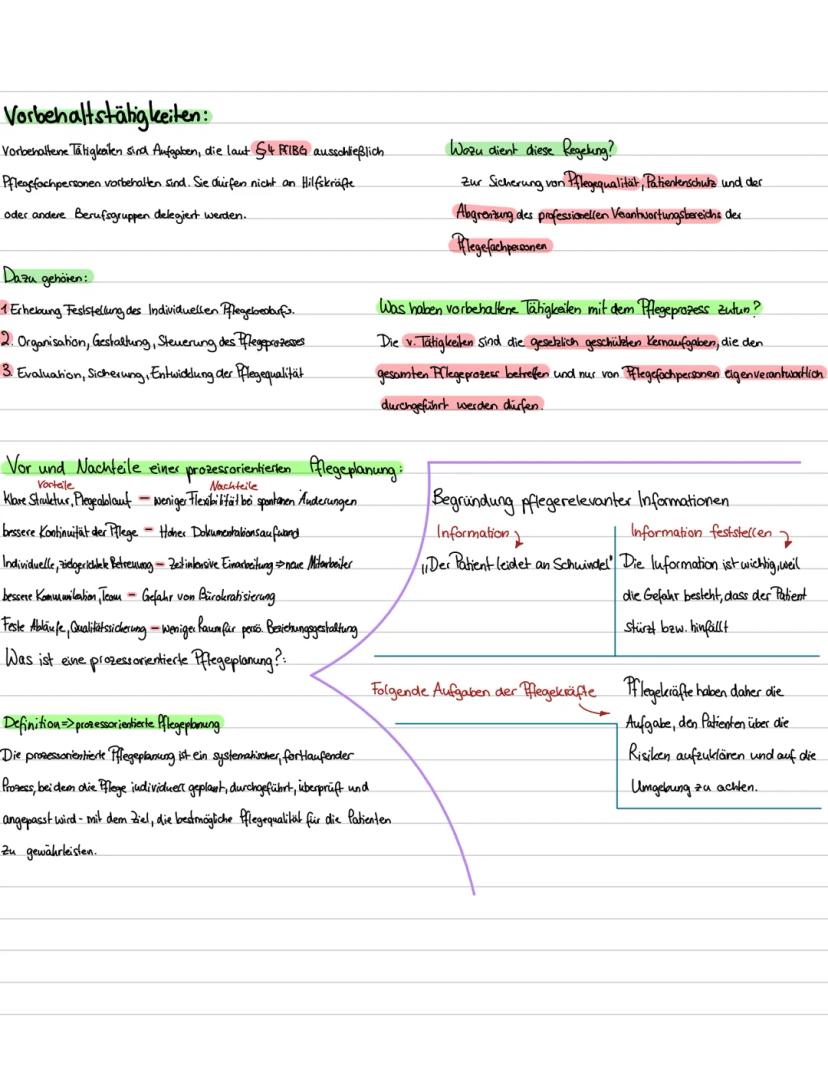 Vorbehaltstätigkeiten:
Vorbehaltene Tätigkeiten sind Aufgaben, die laut §4 PflBG ausschließlich
Pflegefachpersonen vorbehalten sind. Sie dürfen nicht an Hilfskräfte
oder andere Berufsgruppen delegiert werden.
Wozu dient diese Regelung?
zur Sicherung von Pflegequalität, Patientenschutz und der
Abgrenzung des professionellen Verantwortungsbereichs der
Pflegefachpersonen
Dazu gehören:
1 Erhebung Feststellung des Individuellen Pflegebedarfs.
2. Organisation, Gestaltung, Steuerung des Pflegeprozesses
3. Evaluation, Sicherung, Entwicklung der Pflegequalität
Was haben vorbehaltene Tätigkeiten mit dem Pflegeprozess zutun?
Die v. Tätigkeiten sind die gesetzlich geschützten Kernaufgaben, die den
gesamten Pflegeprozess betreffen und nur von Pflegefachpersonen eigenverantwortlich
durchgeführt werden dürfen.
Vor und Nachteile einer prozessorientierten Pflegeplanung:
Vorteile Nachteile
Klare Struktur, Pflegeablauf – weniger Flexibilität bei spontanen Änderungen
bessere Kontinuität der Pflege – Hoher Dokumentationsaufwand
Individuelle, zielgerichtete Betreuung – Zeitintensive Einarbeitung => neue Mitarbeiter
bessere Kommunikation, Team – Gefahr von Bürokratisierung
Feste Abläufe, Qualitätssicherung – weniger Raum für persö. Beziehungsgestaltung
Was ist eine prozessorientierte Pflegeplanung?:
Definition => prozessorientierte Pflegeplanung
Die prozessorientierte Pflegeplanung ist ein systematischer, fortlaufender
Prozess, bei dem die Pflege individuell geplant, durchgeführt, überprüft und
angepasst wird - mit dem Ziel, die bestmögliche Pflegequalität für die Patienten
zu gewährleisten.
Begründung pflegerelevanter Informationen
Information
„Der Patient leidet an Schwindel"
Information feststellen
Die Information ist wichtig, weil
die Gefahr besteht, dass der Patient
stürzt bzw. hinfällt
Folgende Aufgaben der Pflegekräfte
Pflegekräfte haben daher die
Aufgabe, den Patienten über die
Risiken aufzuklären und auf die
Umgebung zu achten.